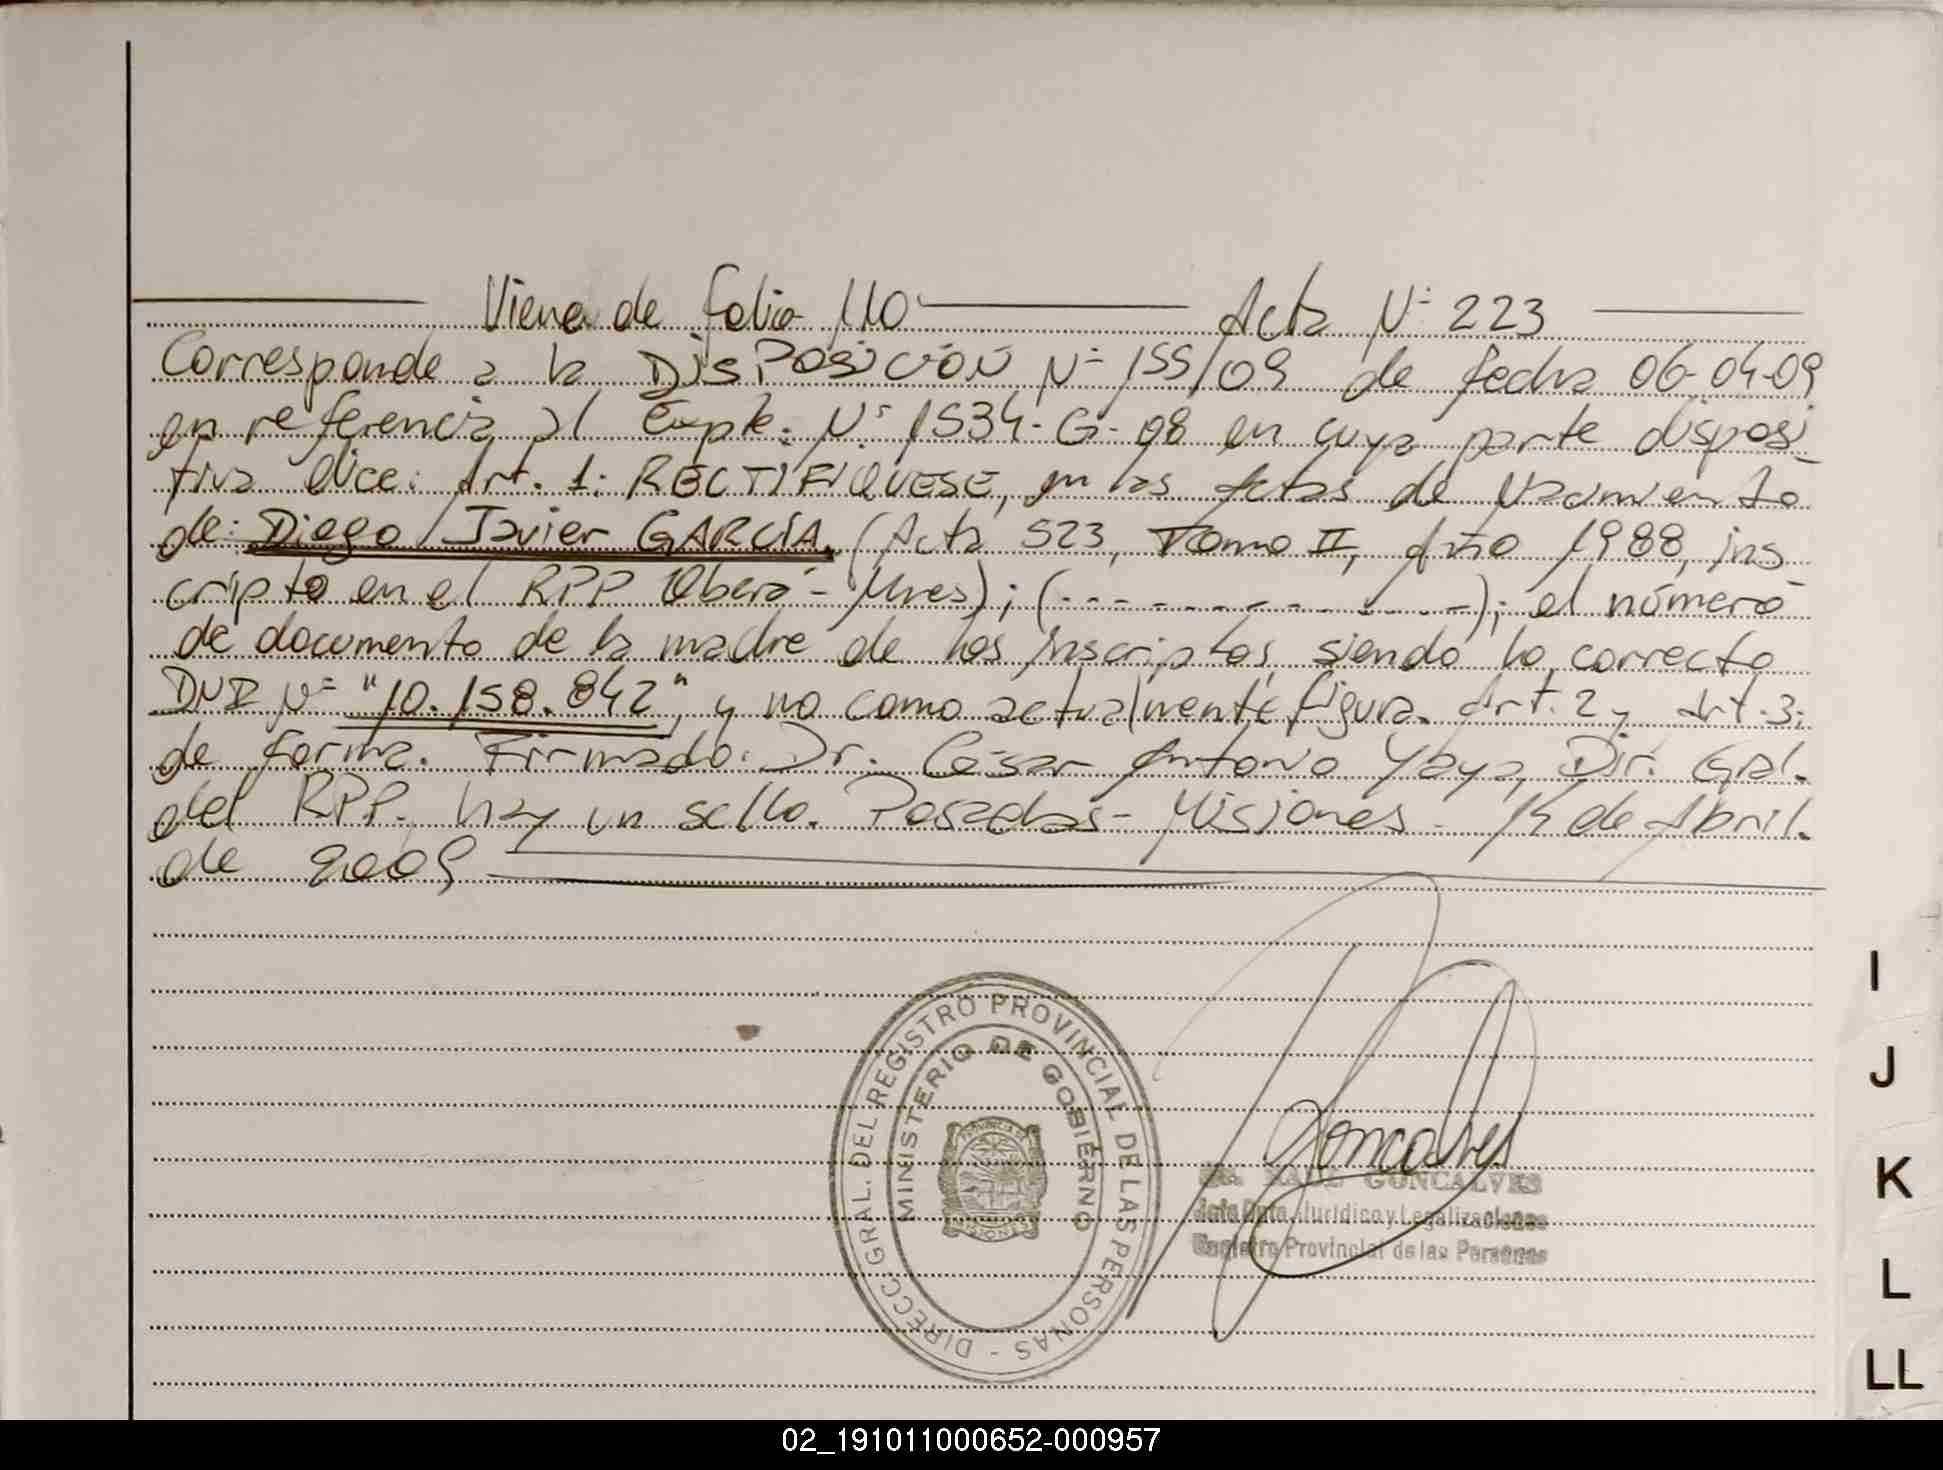 Viene de folio 110 Acta N° 223
Corresponde a la DISPOSICIÓN N° 155/09 de fecha 06-04-09
en referencia al Expte. N° 1534-G-08 en cuya parte disposi
tiva dice: Art. 1: RECTIFIQUESE, en las Actas de Nacimiento
de: Diego Javier GARCÍA, (Acta 523, Tomo II, Año 1988, ins
cripto en el RPP Oberá - Mnes); (- - - - - - - - - - -); el número
de documento de la madre de los inscriptos, siendo lo correcto
DNI N° "10.158.842", y no como actualmente figura. Art. 2 y Art. 3:
de forma. Firmado: Dr. César Antonio Yaya, Dir. Gral.
del RPP. hay un sello. Posadas - Misiones - de Abril.
de 2009
DIRECC. GRAL. DEL REGISTRO PROVINCIAL DE LAS PERSONAS -
MINISTERIO DE GOBIERNO
PROVINCIA DE
MISIONES
Goncalves
RAUL GONCALVES
Jefe Dpto. Jurídico y Legalizaciones
Registro Provincial de las Personas
I
J
K
L
LL
02_191011000652-000957